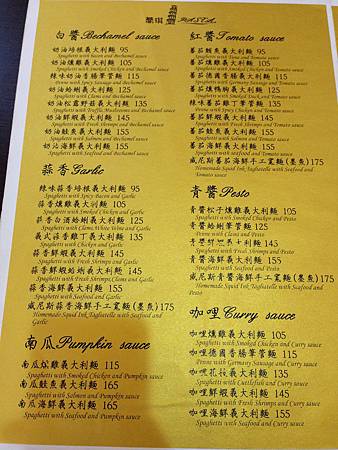 PASTA
白醬Bechamel sauce
奶油培根義大利麵 95
Spaghetti with Bacon and Bechamel sauce
奶油燻雞義大利麵 105
Spaghetti with Smoked Chicken and Bechamel sauce
辣味奶油香腸筆管麵 115
Penne with Spicy Sausage and Bechamel sauce
奶油蛤蜊義大利麵 125
Spaghetti with Clams and Bechamel sauce
奶油松露野菇義大利麵 135
Spaghetti with Truffle, Mushrooms and Bechamel sauce
奶油鮮蝦義大利麵 145
Spaghetti with Fresh Shrimps and Bechamel sauce
奶油鮭魚義大利麵 155
Spaghetti with Salmon and Bechamel sauce
奶油海鮮義大利麵 155
Spaghetti with Seafood and Bechamel sauce
蒜香Garlic
辣味蒜香培根義大利麵 95
Spaghetti with Spicy Bacon and Garlic
蒜香燻雞義大利麵 105
Spaghetti with Smoked Chicken and Garlic
蒜香白酒蛤蜊義大利麵 125
Spaghetti with Clams, White Wine and Garlic
義式蒜香雞丁義大利麵 135
Spaghetti with Chicken and Garlic
蒜香鮮蝦義大利麵 145
Spaghetti with Fresh Shrimps and Garlic
蒜香鮮蝦蛤蜊義大利麵 145
Spaghetti with Fresh Shrimps, Clams and Garlic
蒜香海鮮義大利麵 155
Spaghetti with Seafood and Garlic
威尼斯蒜香海鮮手工寬麵(墨魚)175
Homemade Squid Ink Tagliatelle with Seafood and
Garlic
南瓜Pumpkin sauce
南瓜燻雞義大利麵 115
Spaghetti with Smoked Chicken and Pumpkin sauce
南瓜鮭魚義大利麵 165
Spaghetti with Salmon and Pumpkin sauce
南瓜海鮮義大利麵 165
Spaghetti with Seafood and Pumpkin sauce
紅醬Tomato sauce
蕃茄鮪魚義大利麵 95
Spaghetti with Tuna and Tomato sauce
蕃茄燻雞義大利麵 105
Spaghetti with Smoked Chicken and Tomato sauce
蕃茄德國香腸義大利麵 115
Spaghetti with Germany Sausage and Tomato sauce
蕃茄燻鴨義大利麵 125
Spaghetti with Smoked Duck and Tomato sauce
辣味蕃茄雞丁筆管麵 135
Penne with Spicy Chicken and Tomato sauce
蕃茄鮮蝦義大利麵 145
Spaghetti with Fresh Shrimps and Tomato sauce
蕃茄鮭魚義大利麵 155
Spaghetti with Salmon and Tomato sauce
蕃茄海鮮義大利麵 155
Spaghetti with seafood and Tomato sauce
威尼斯蕃茄海鮮手工寬麵(墨魚)175
Homemade Squid Ink Tagliatelle with Seafood and
Tomato sauce
青醬Pesto
青醬松子燻雞義大利麵 105
Spaghetti with Smoked Chicken and Pesto
青醬蛤蜊筆管麵 125
Penne with Clams and Pesto
青醬鮮蝦義大利麵 145
Spaghetti with Fresh Shrimps and Pesto
青醬海鮮義大利麵 155
Spaghetti with Seafood and Pesto
威尼斯青醬海鮮手工寬麵(墨魚)175
Homemade Squid Ink Tagliatelle with Seafood and
Pesto
咖哩Curry sauce
咖哩燻雞義大利麵 105
Spaghetti with Smoked Chicken and Curry sauce
咖哩德國香腸筆管麵 115
Penne with Germany Sausage and Curry sauce
咖哩花枝義大利麵 135
Spaghetti with Cuttlefish and Curry sauce
咖哩鮮蝦義大利麵 145
Spaghetti with Fresh Shrimps and Curry sauce
咖哩海鮮義大利麵 155
Spaghetti with Seafood and Curry sauce